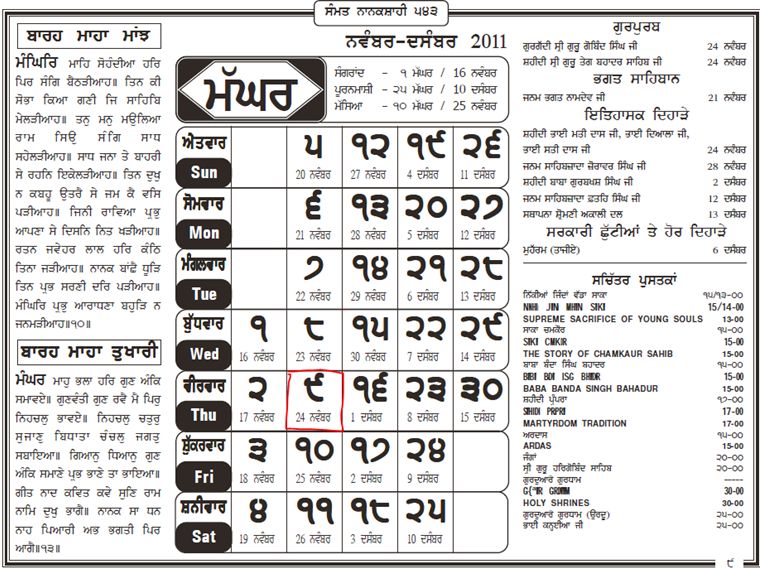 ਸੰਮਤ ਨਾਨਕਸ਼ਾਹੀ ੫੪੩
ਬਾਰਹ ਮਾਹਾ ਮਾਂਝ
ਮੰਘਿਰਿ ਮਾਹਿ ਸੋਹੰਦੀਆ ਹਰਿ
ਪਿਰ ਸੰਗਿ ਬੈਠੜੀਆਹ॥ ਤਿਨ ਕੀ
ਸੋਭਾ ਕਿਆ ਗਣੀ ਜਿ ਸਾਹਿਬਿ
ਮੇਲੜੀਆਹ॥ ਤਨੁ ਮਨੁ ਮਉਲਿਆ
ਰਾਮ ਸਿਉ ਸੰਗਿ ਸਾਧ
ਸਹੇਲੜੀਆਹ॥ ਸਾਧ ਜਨਾ ਤੇ ਬਾਹਰੀ
ਸੇ ਰਹਨਿ ਇਕੇਲੜੀਆਹ॥ ਤਿਨ ਦੁਖੁ
ਨ ਕਬਹੂ ਉਤਰੈ ਸੇ ਜਮ ਕੈ ਵਸਿ
ਪੜੀਆਹ॥ ਜਿਨੀ ਰਾਵਿਆ ਪ੍ਰਭੁ
ਆਪਣਾ ਸੇ ਦਿਸਨਿ ਨਿਤ ਖੜੀਆਹ॥
ਰਤਨ ਜਵੇਹਰ ਲਾਲ ਹਰਿ ਕੰਠਿ
ਤਿਨਾ ਜੜੀਆਹ॥ ਨਾਨਕ ਬਾਂਛੈ ਧੂੜਿ
ਤਿਨ ਪ੍ਰਭ ਸਰਣੀ ਦਰਿ ਪੜੀਆਹ॥
ਮੰਘਿਰਿ ਪ੍ਰਭੁ ਆਰਾਧਣਾ ਬਹੁੜਿ ਨ
ਜਨਮੜੀਆਹ॥੧੦॥
ਬਾਰਹ ਮਾਹਾ ਤੁਖਾਰੀ
ਮੰਘਰ ਮਾਹੁ ਭਲਾ ਹਰਿ ਗੁਣ ਅੰਕਿ
ਸਮਾਵਏ॥ ਗੁਣਵੰਤੀ ਗੁਣ ਰਵੈ ਮੈ ਪਿਰੁ
ਨਿਹਚਲੁ ਭਾਵਏ॥ ਨਿਹਚਲੁ ਚਤੁਰੁ
ਸੁਜਾਣੁ ਬਿਧਾਤਾ ਚੰਚਲੁ ਜਗਤੁ
ਸਬਾਇਆ॥ ਗਿਆਨੁ ਧਿਆਨੁ ਗੁਣ
ਅੰਕਿ ਸਮਾਣੇ ਪ੍ਰਭ ਭਾਣੇ ਤਾ ਭਾਇਆ॥
ਗੀਤ ਨਾਦ ਕਵਿਤ ਕਵੇ ਸੁਣਿ ਰਾਮ
ਨਾਮਿ ਦੁਖੁ ਭਾਗੈ॥ ਨਾਨਕ ਸਾ ਧਨ
ਨਾਹ ਪਿਆਰੀ ਅਭ ਭਗਤੀ ਪਿਰ
ਆਗੈ॥੧੩॥
ਨਵੰਬਰ-ਦਸੰਬਰ 2011
ਮੱਘਰ
ਸੰਗਰਾਂਦ - ੧ ਮੱਘਰ / 16 ਨਵੰਬਰ
ਪੂਰਨਮਾਸ਼ੀ - ੨੫ ਮੱਘਰ / 10 ਦਸੰਬਰ
ਮੱਸਿਆ - ੧੦ ਮੱਘਰ / 25 ਨਵੰਬਰ
ਐਤਵਾਰ ੫ ੧੨ ੧੯ ੨੬
Sun 20 ਨਵੰਬਰ 27 ਨਵੰਬਰ 4 ਦਸੰਬਰ 11 ਦਸੰਬਰ
ਸੋਮਵਾਰ ੬ ੧੩ ੨੦ ੨੭
Mon 21 ਨਵੰਬਰ 28 ਨਵੰਬਰ 5 ਦਸੰਬਰ 12 ਦਸੰਬਰ
ਮੰਗਲਵਾਰ ੭ ੧੪ ੨੧ ੨੮
Tue 22 ਨਵੰਬਰ 29 ਨਵੰਬਰ 6 ਦਸੰਬਰ 13 ਦਸੰਬਰ
ਬੁੱਧਵਾਰ ੧ ੮ ੧੫ ੨੨ ੨੯
Wed 16 ਨਵੰਬਰ 23 ਨਵੰਬਰ 30 ਨਵੰਬਰ 7 ਦਸੰਬਰ 14 ਦਸੰਬਰ
ਵੀਰਵਾਰ ੨ ੯ ੧੬ ੨੩ ੩੦
Thu 17 ਨਵੰਬਰ 24 ਨਵੰਬਰ 1 ਦਸੰਬਰ 8 ਦਸੰਬਰ 15 ਦਸੰਬਰ
ਸ਼ੁੱਕਰਵਾਰ ੩ ੧੦ ੧੭ ੨੪
Fri 18 ਨਵੰਬਰ 25 ਨਵੰਬਰ 2 ਦਸੰਬਰ 9 ਦਸੰਬਰ
ਸ਼ਨੀਵਾਰ ੪ ੧੧ ੧੮ ੨੫
Sat 19 ਨਵੰਬਰ 26 ਨਵੰਬਰ 3 ਦਸੰਬਰ 10 ਦਸੰਬਰ
ਗੁਰਪੁਰਬ
ਗੁਰਗੱਦੀ ਸ੍ਰੀ ਗੁਰੂ ਗੋਬਿੰਦ ਸਿੰਘ ਜੀ 24 ਨਵੰਬਰ
ਸ਼ਹੀਦੀ ਸ੍ਰੀ ਗੁਰੂ ਤੇਗ ਬਹਾਦਰ ਸਾਹਿਬ ਜੀ 24 ਨਵੰਬਰ
ਭਗਤ ਸਾਹਿਬਾਨ
ਜਨਮ ਭਗਤ ਨਾਮਦੇਵ ਜੀ 21 ਨਵੰਬਰ
ਇਤਿਹਾਸਿਕ ਦਿਹਾੜੇ
ਸ਼ਹੀਦੀ ਭਾਈ ਮਤੀ ਦਾਸ ਜੀ, ਭਾਈ ਦਿਆਲਾ ਜੀ,
ਭਾਈ ਸਤੀ ਦਾਸ ਜੀ 24 ਨਵੰਬਰ
ਜਨਮ ਸਾਹਿਬਜ਼ਾਦਾ ਜ਼ੋਰਾਵਰ ਸਿੰਘ ਜੀ 28 ਨਵੰਬਰ
ਸ਼ਹੀਦੀ ਬਾਬਾ ਗੁਰਬਖਸ਼ ਸਿੰਘ ਜੀ 2 ਦਸੰਬਰ
ਜਨਮ ਸਾਹਿਬਜ਼ਾਦਾ ਫ਼ਤਹਿ ਸਿੰਘ ਜੀ 12 ਦਸੰਬਰ
ਸਥਾਪਨਾ ਸ਼੍ਰੋਮਣੀ ਅਕਾਲੀ ਦਲ 13 ਦਸੰਬਰ
ਸਰਕਾਰੀ ਛੁੱਟੀਆਂ ਤੇ ਹੋਰ ਦਿਹਾੜੇ
ਮੁਹੱਰਮ (ਤਾਜੀਏ) 6 ਦਸੰਬਰ
ਸਚਿੱਤਰ ਪੁਸਤਕਾਂ
ਨਿੱਕੀਆਂ ਜਿੰਦਾਂ ਵੱਡਾ ਸਾਕਾ ੧੫/੧੩-੦੦
15/14-00
SUPREME SACRIFICE OF YOUNG SOULS 13-00
ਸਾਕਾ ਚਮਕੌਰ ੧੫-੦੦
SIKI CMKIR 15-00
THE STORY OF CHAMKAUR SAHIB 15-00
ਬਾਬਾ ਬੰਦਾ ਸਿੰਘ ਬਹਾਦਰ ੧੫-੦੦
15-00
BABA BANDA SINGH BAHADUR 15-00
ਸ਼ਹੀਦੀ ਪ੍ਰੰਪਰਾ ੧੭-੦੦
17-00
MARTYRDOM TRADITION 17-00
ਅਰਦਾਸ ੧੫-੦੦
ARDAS 15-00
ਜੰਗਾਂ ੨੦-੦੦
ਸ੍ਰੀ ਗੁਰੂ ਹਰਿਗੋਬਿੰਦ ਸਾਹਿਬ ੨੦-੦੦
ਗੁਰਦੁਆਰੇ ਗੁਰਧਾਮ -----
30-00
HOLY SHRINES 30-00
ਗੁਰਦੁਆਰੇ ਗੁਰਧਾਮ (ਉਰਦੂ) ੨੫-੦੦
ਭਾਈ ਕਨ੍ਹਈਆ ਜੀ ੨੫-੦੦
੯